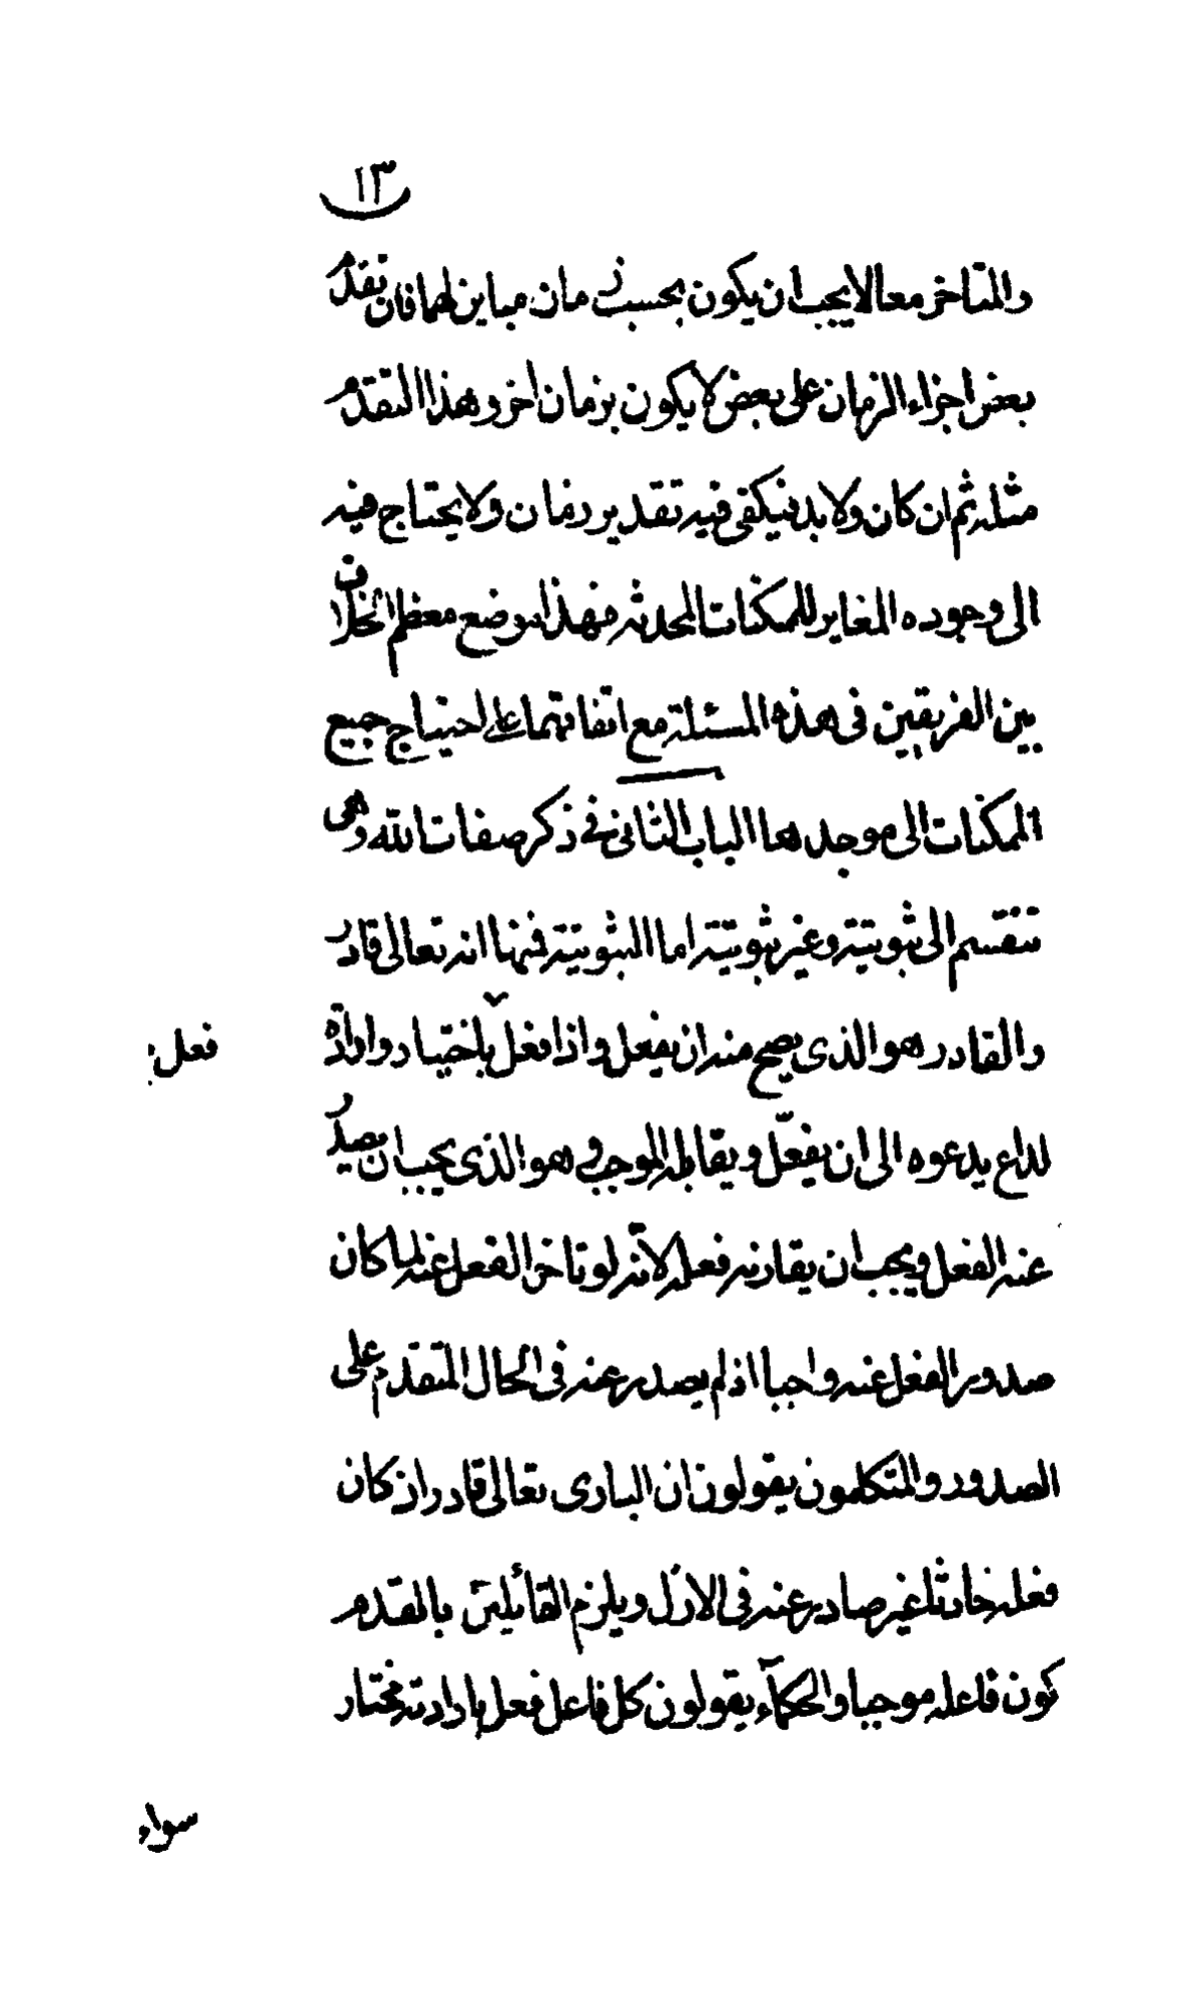 ١٣
والمتاخر معا لا يجب ان يكون بحسب زمان مباين لهما فان تقدم
بعض اجزاء الزمان على بعض لا يكون بزمان اخر وهذا التقدم
مثله ثم ان كان ولا بد فيكفى فيه تقدير زمان ولا يحتاج فيه
الى وجوده المغاير للممكنات المحدثه فهذا موضع معظم الخلاف
بين الفريقين فى هذه المسئلة مع اتفاقهما على احتياج جميع
الممكنات الى موجدها الباب الثانى فى ذكر صفات الله وهى
تنقسم الى ثبوتية وغير ثبوتية اما الثبوتية فمنها انه تعالى قادر
والقادر هو الذى يصح منه ان يفعل واذا فعل باختيار وارادة
فعل
لداع يدعوه الى ان يفعل ويقابله الموجب وهو الذى يجب ان يصدر
عنه الفعل ويجب ان يقارنه فعله لانه لو تاخر الفعل عنه لما كان
صدور الفعل عنه واجبا اذ لم يصدر عنه فى الحال المتقدم على
الصدور والمتكلمون يقولون ان البارى تعالى قادر اذ كان
فعله حادثا غير صادر عنه فى الازل ويلزم القائلين بالقدم
كون فاعله موجبا والحكماء يقولون كل فاعل فعل بارادته مختار
سواء